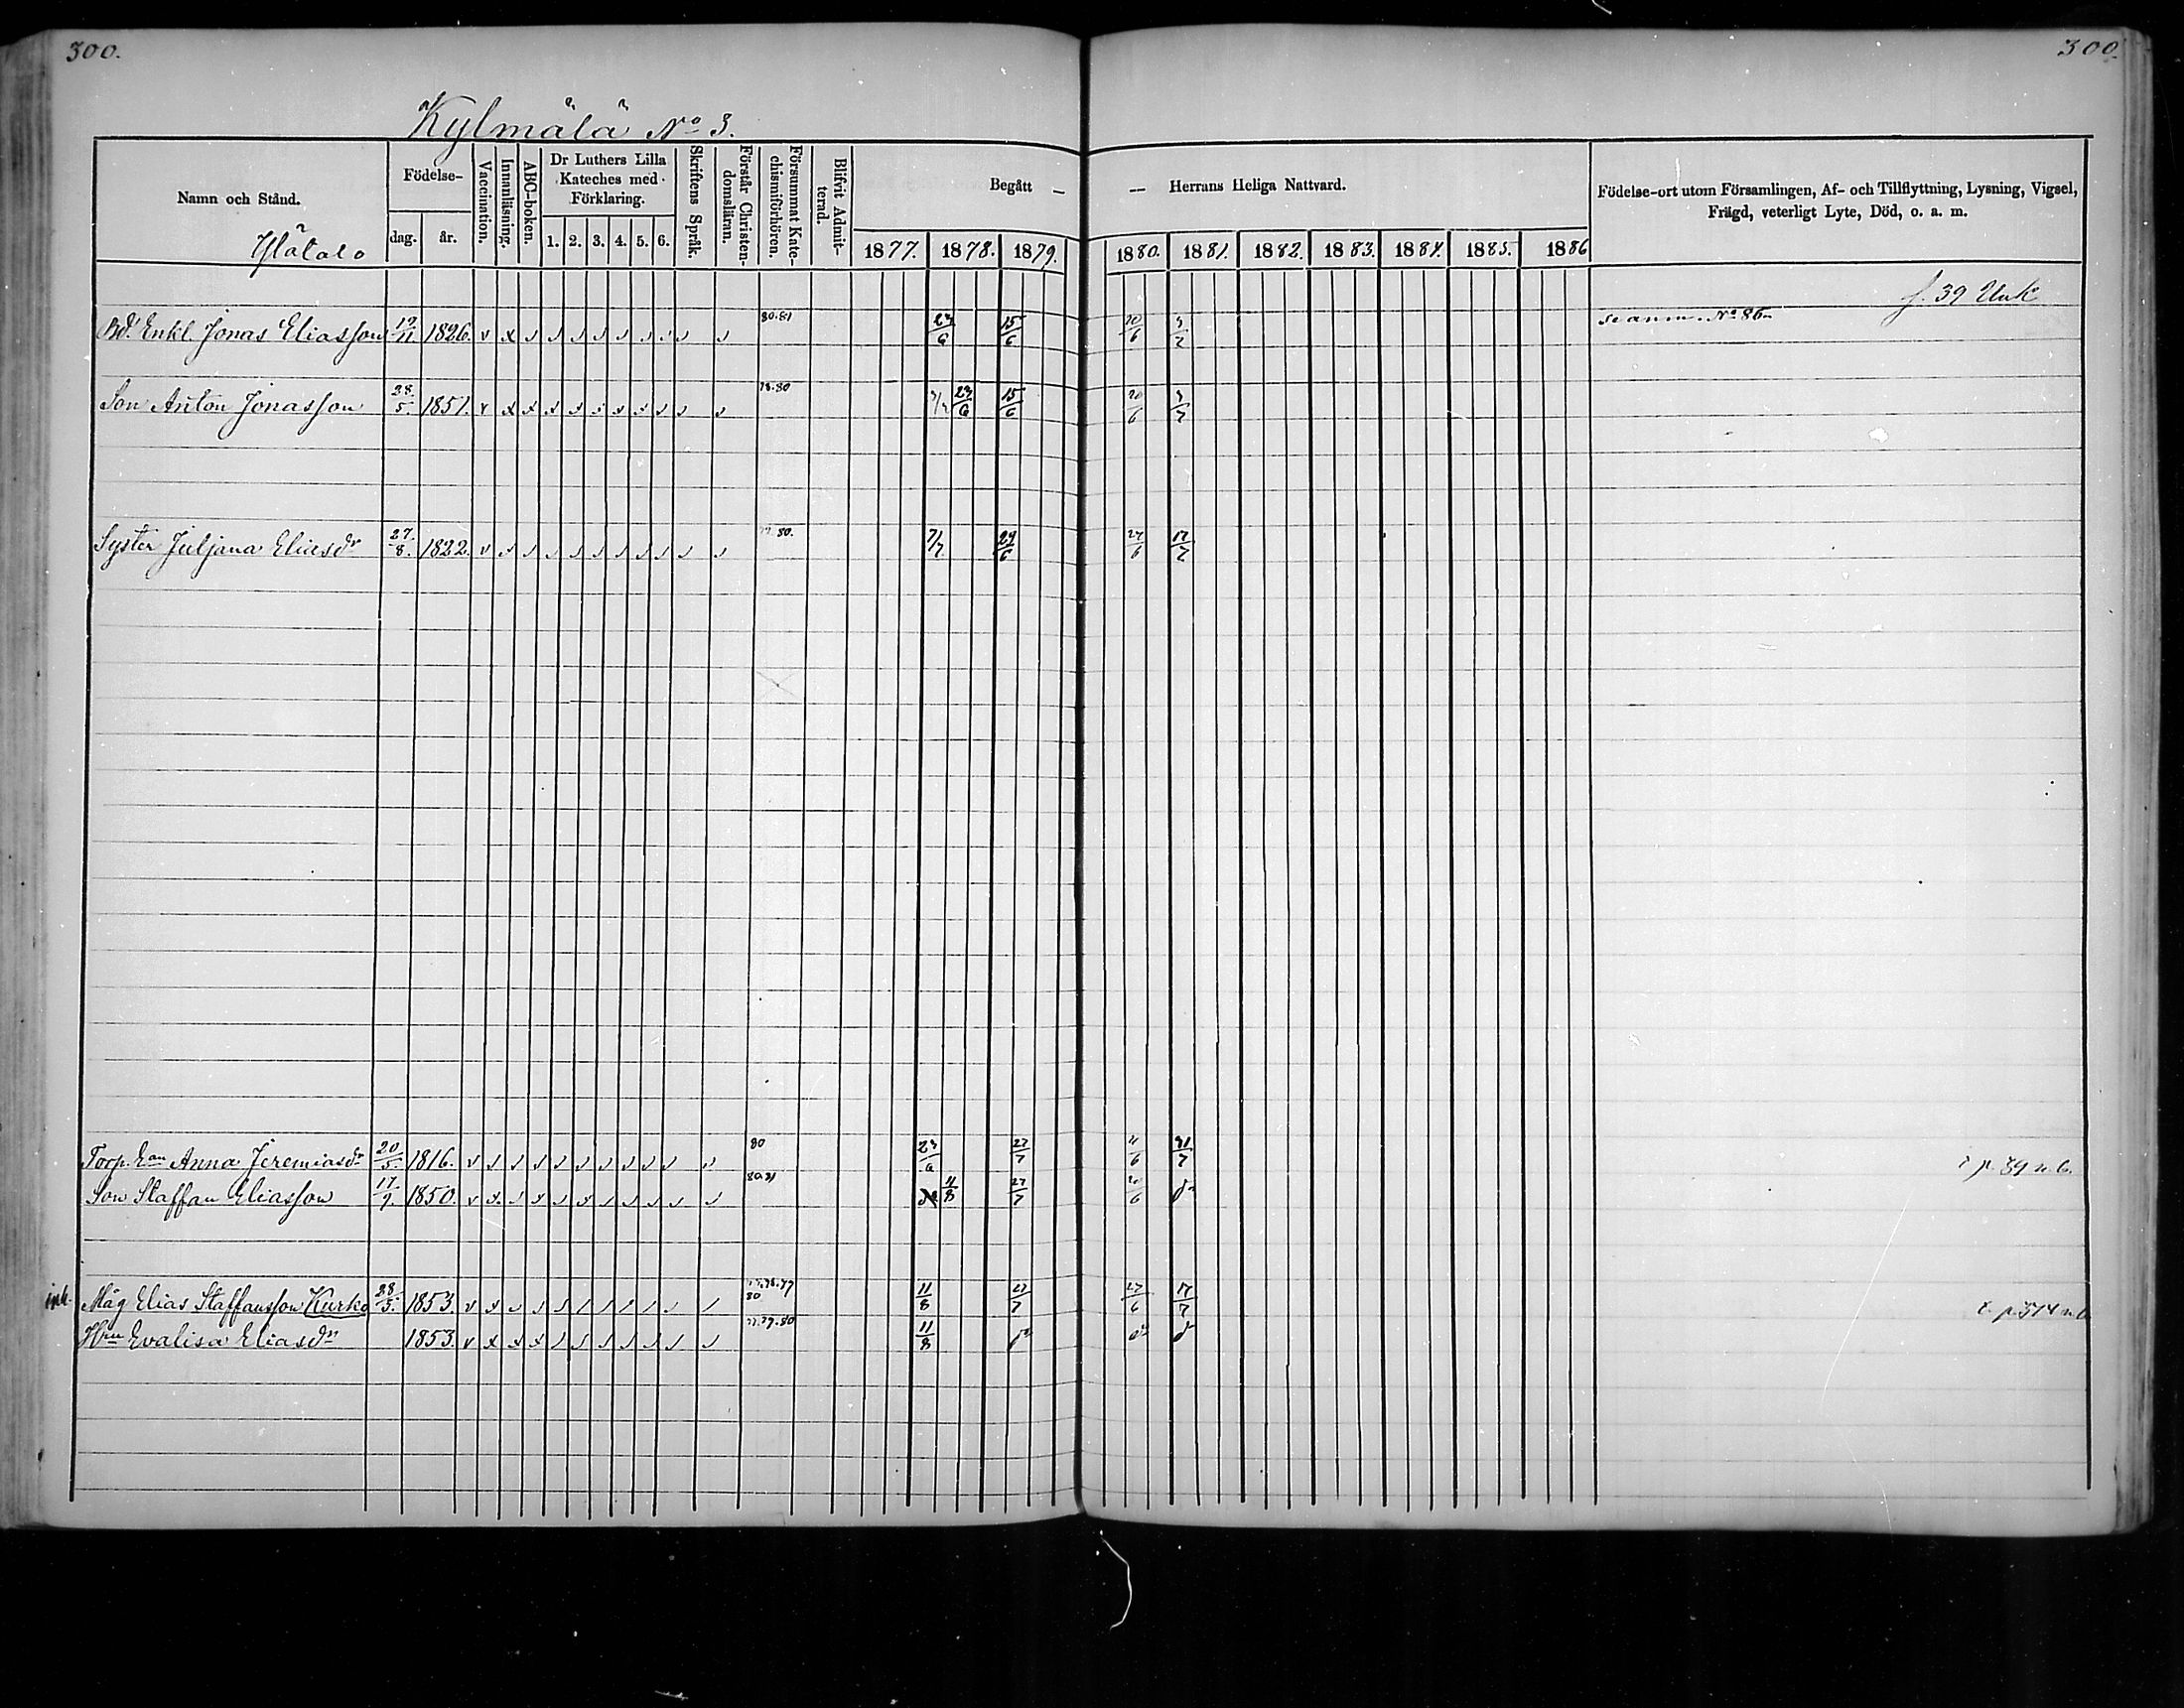 300.
300.
Kylmälä No 3.
Namn och Stånd.
Födelse-
dag.
år.
Vaccination.
Innanläsning.
ABC-boken.
Dr Luthers Lilla Kateches med Förklaring.
1. 2. 3. 4. 5. 6.
Skriftens Språk.
Förstår Christen-domsläran.
Försummat Kate-chismiförhören.
Blifvit Admit-terad.
Begått — — Herrans Heliga Nattvard.
1877. 1878. 1879. 1880. 1881. 1882. 1883. 1884. 1885. 1886
Födelse-ort utom Församlingen, Af- och Tillflyttning, Lysning, Vigsel,
Frägd, veterligt Lyte, Död, o. a. m.
Ylätalo
f. 39
Enkl. Jonas Eliasson 1826. 80.81 15/6 20/6 se anm. No 86
Son Anton Jonasson 28/5. 1851. 78.80 15/6 20/6
Syster Juljana Eliasdr 27/8. 1822. 80. 7/7 29/6 27/6 17/7
Torp. Ean Anna Jeremiasdr 20/5. 1816. 80 27/7 31/7
Son Staffan Eliasson 1850. 80.81 11/8 27/7 20/6
Måg Elias Staffansson Kurko 28/3. 1853 80 11/8 27/7 27/6 17/7
Hun Evalisa Eliasdr 1853. 79.80 11/8